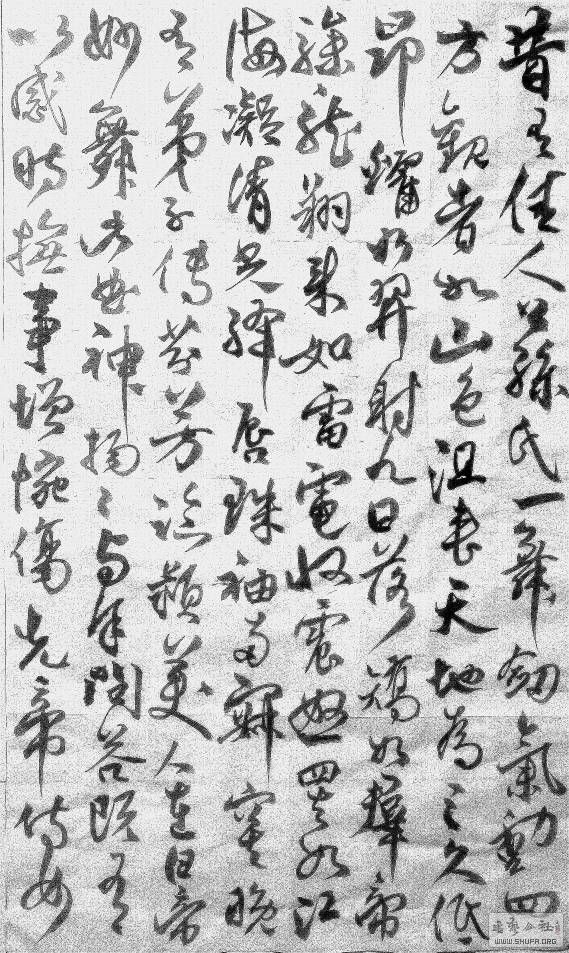 昔有佳人公孫氏一舞劍氣動四
方觀者如山色沮喪天地為之久低
昂如羿射九日落矯如羣帝
驂龍翔來如雷電收震怒罷如江
海凝清光絳唇珠袖兩寂寞晚
有弟子傳芬芳臨潁美人在白帝
妙舞此曲神揚々與余問答既有
以感時撫事增惋傷先帝侍女
WWW.SHUFA.ORG